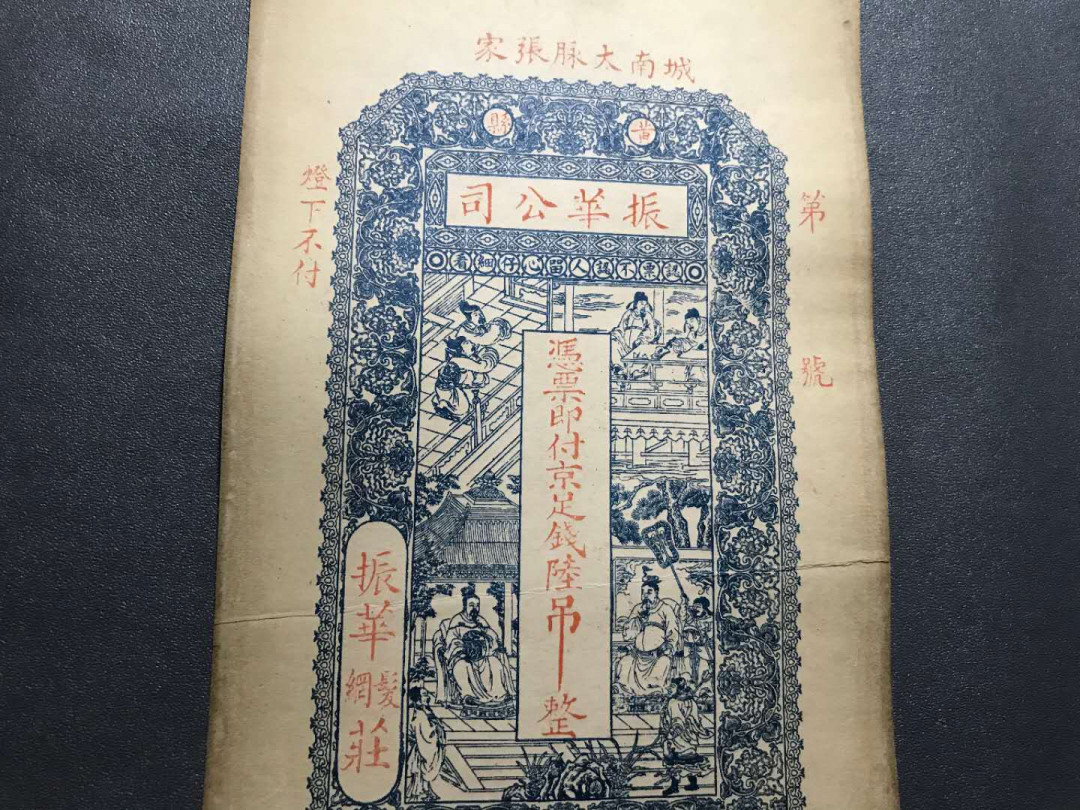 城南大脉張家
黃縣
振華公司
認票不認人畄心仔細看
第號
憑票即付京足錢陸吊整
燈下不付
振華髮網莊